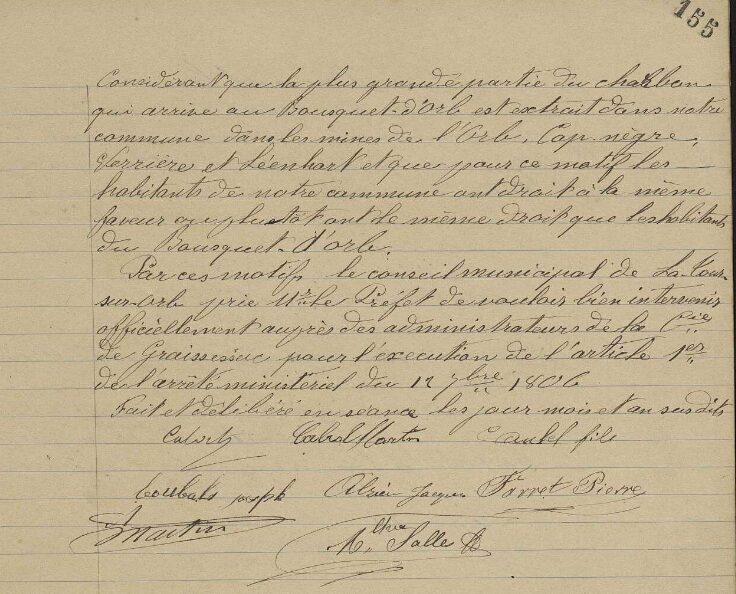 155
Considérant que la plus grande partie du charbon
qui arrive au Bousquet-d'Orb est extrait dans notre
commune dans les mines de l'Orb, Cap nègre,
Verrière et Léenhart et que pour ce motif les
habitants de notre commune ont droit à la même
faveur ou plustot ont le même droit que les habitants
du Bousquet-d'orb.
Par ces motifs le conseil municipal de La Tour-
sur-Orb prie Mr le Préfet de vouloir bien intervenir
officiellement auprès des administrateurs de la Cie
de Graissessac pour l'execution de l'article 1er
de l'arrêté ministériel du 12 7bre 1806
Fait et délibéré en séance les jour mois et an susdits
Cabrol Martin fils
Coubals joseph Alzieu Jacques Farret Pierre
Martin
Salle